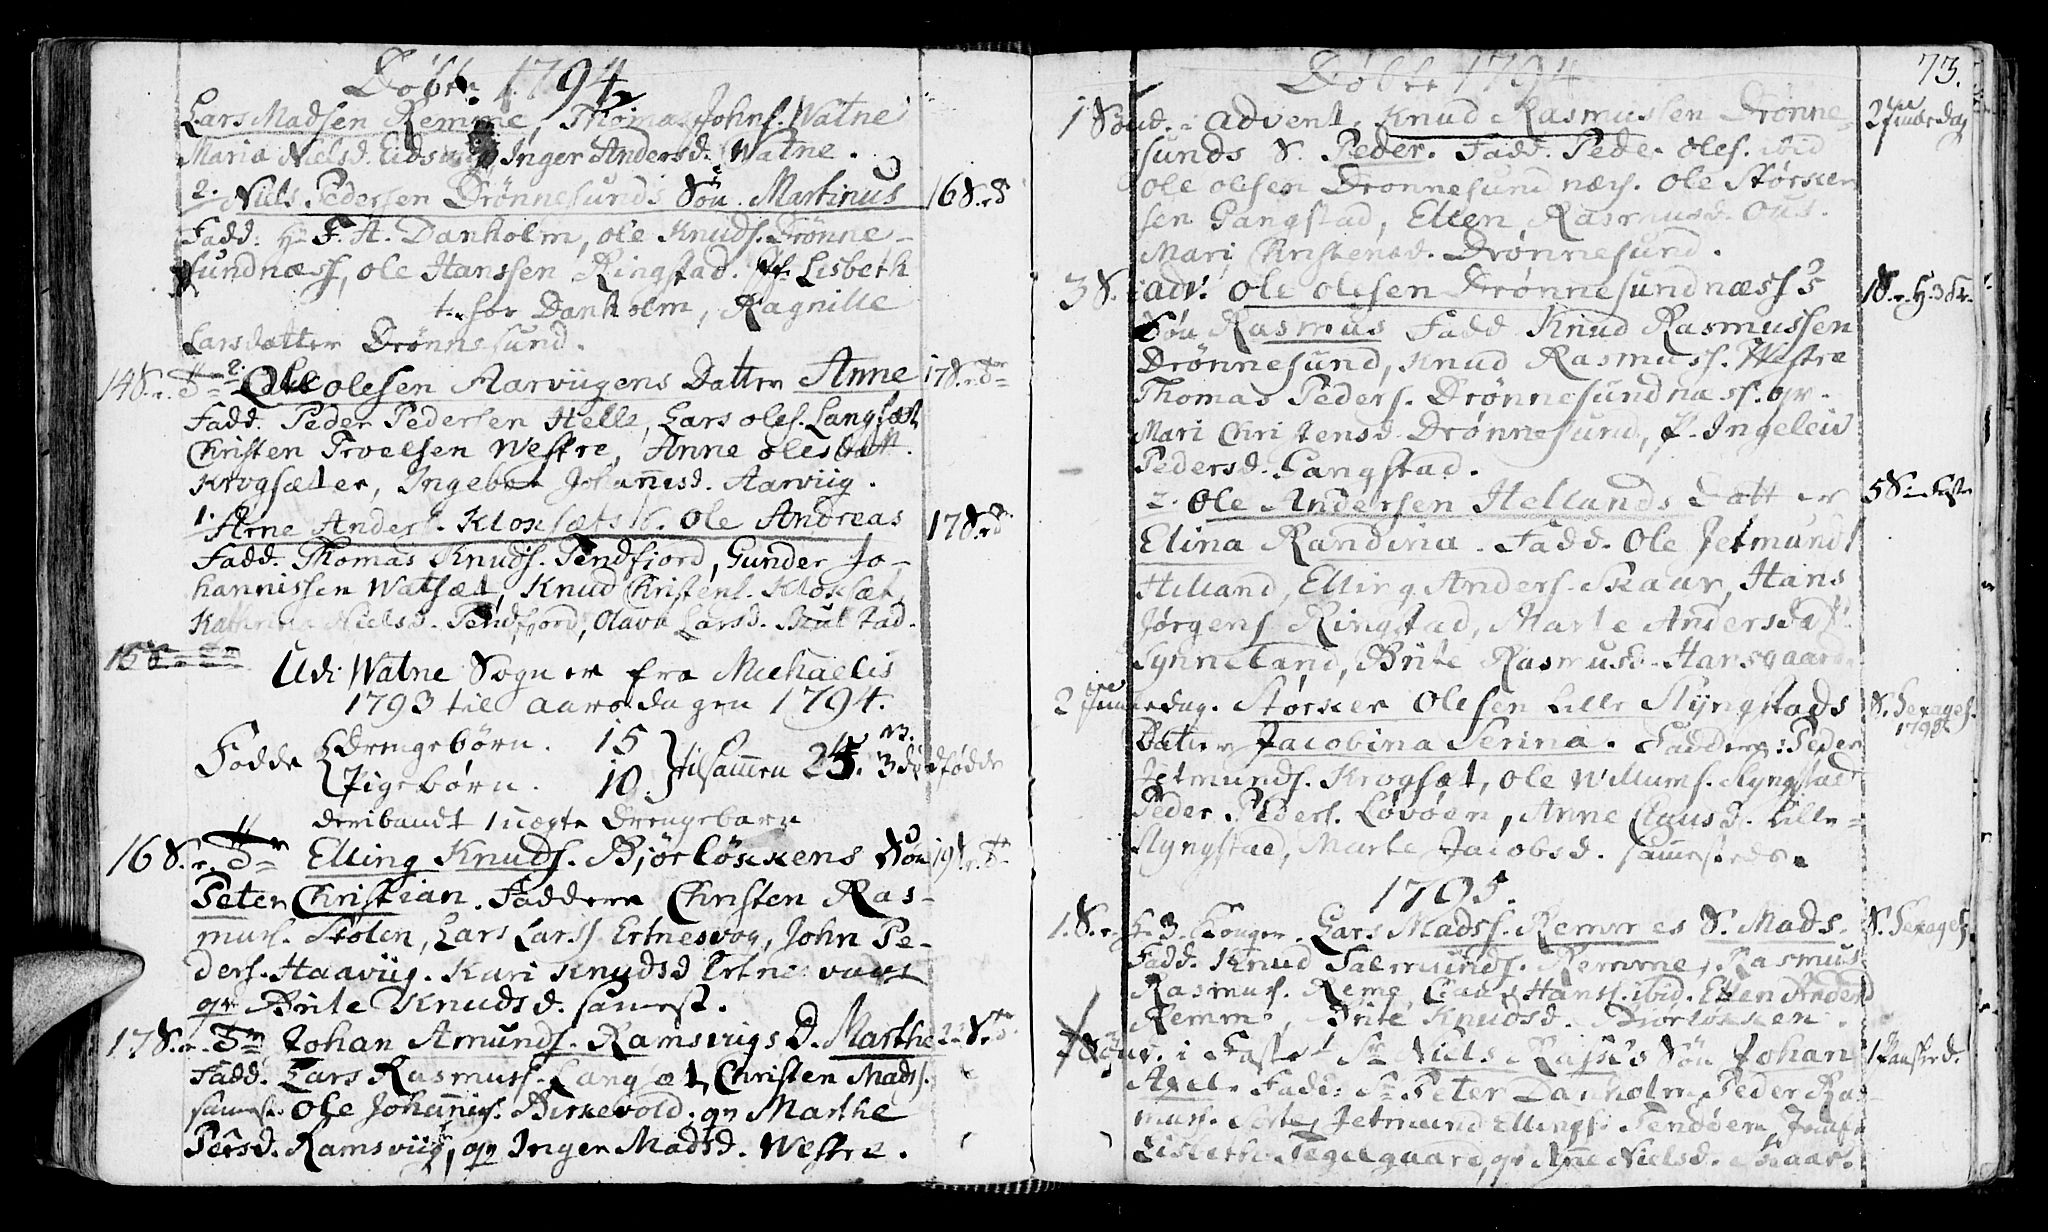 Døbte 1794
Lars Madsen Remme, Thomas Johns. Watne
Maria Nielsd. Eidsvig, Inger Andersd. Watne.
2. Niels Pedersen Drønnesunds Søn Martinus 16 S. r. d
Fadd: Hr F. A. Danholm, ole Knuds. Drønne-
sundnæss, ole Hanssen Ringstad. Lisbeth
Danholm, Ragnille
Larsdatter Drønnesund.
14 S. r. Tr 2. Ole olesen Aarviigens Datter Anne 17 S. r. Tr
Fadd. Peder Pedersen Helle, Lars oles. Langsæt
Christen Troelsen Westre, Anne olesdatt.
Krogsæter, Ingebor Johannesd. Aarviig.
1. Arne Anders. Kloxsæts S. Ole Andreas 17 S. r. d
Fadd. Thomas Knuds. Tendfjord, Gunder Jo-
hannissen Watsæt, Knud Christens. Kloksæt,
Kathrina Nielsd. Tendfjord, Olava Larsd. Skulstad.
Udi Watne Sogn er fra Michaelis
1793 til aarsdagen 1794.
Fødde Drengebørn. 15 tilsamen 25. 3 dødfødde
Pigebørn. 10
deribandt 1 uægte Drengebarn
16 S. r. Tr Elling Knuds. Bjørløkkens Søn 19 S. r. Tr
Peter Christian. Faddere Christen Ras-
mus. Stølen, Lars Larss Ertnesvog, John Pe-
ders. Haaviig. Kari Knudsd Ertnesvaag
qv Brite Knudsd. samest.
17 S. r. Tr Johan Amunds. Ramsvigs D. Marthe 2 S.
Fadd. Lars Rasmuss. Langsæt, Christen Mads.
samest. Ole Johannis. Birkevold. qv Marthe
Persd. Ramsviig, qv Inger Madsd. Westre.
73.
Døbte 1794
1 Sønd. i advent. Knud Rasmussen Drønne- 2 Juuledag
sunds S. Peder. Fadd. Peder oles. ibid
ole olesen Drønnesundnæs. Ole Størker
sen Gangstad, Ellen Rasmusd. Ous.
Mari Christensd. Drønnesund.
3 S. i adv. Ole olesen Drønnesundnæss's 1 S. r. H. 3 K.
Søn Rasmus Fadd Knud Rasmussen
Drønnesund, Knud Rasmuss. Westre
Thomas Peders. Drønnesundnæss. qv.
Mari Christensd. Drønnesund, P. Ingeleiv
Pedersd. Gangstad.
2. Ole Andersen Hellands Datter 5 S. i Faste
Elina Randina. Fadd. Ole Jetmunds
Helland, Elling Anders. Skaar, Hans
Jørgens Ringstad, Marte Andersdatt.
Synneland, Brite Rasmusd. Hansgaard
2 Juuledag. Størker Olesen Lille Slyngstads S. Sexages.
Datter Jacobina Serina. Faddere: Peder 1795
Jetmunds. Krogsæt, Ole Willums. Slyngstad
Peder Peders. Løvøen, Anne Clausd. Lille-
Slyngstad, Marte Jacobsd. samesteds.
1795.
1. S. r. H. 3 Konger. Lars Madss. Remmes S. Mads. S. Sexages.
Fadd. Knud Salmunds. Remme, Rasmus
Rasmus. Reme, Claus Hans. ibid. Ellen Andersd
Remme, Brite Knudsd. Biørløkken.
Sønd. i Faste Sr Niels Rasks Søn Johan 1 Paasked.
Axel. Fadd: Sr Peter Danholm, Peder Ras-
mus. Jetmund Ellings. Tendøen, Jomfr
Lisbeth Tegelgaard, qv Anne Nielsd. Skaar.